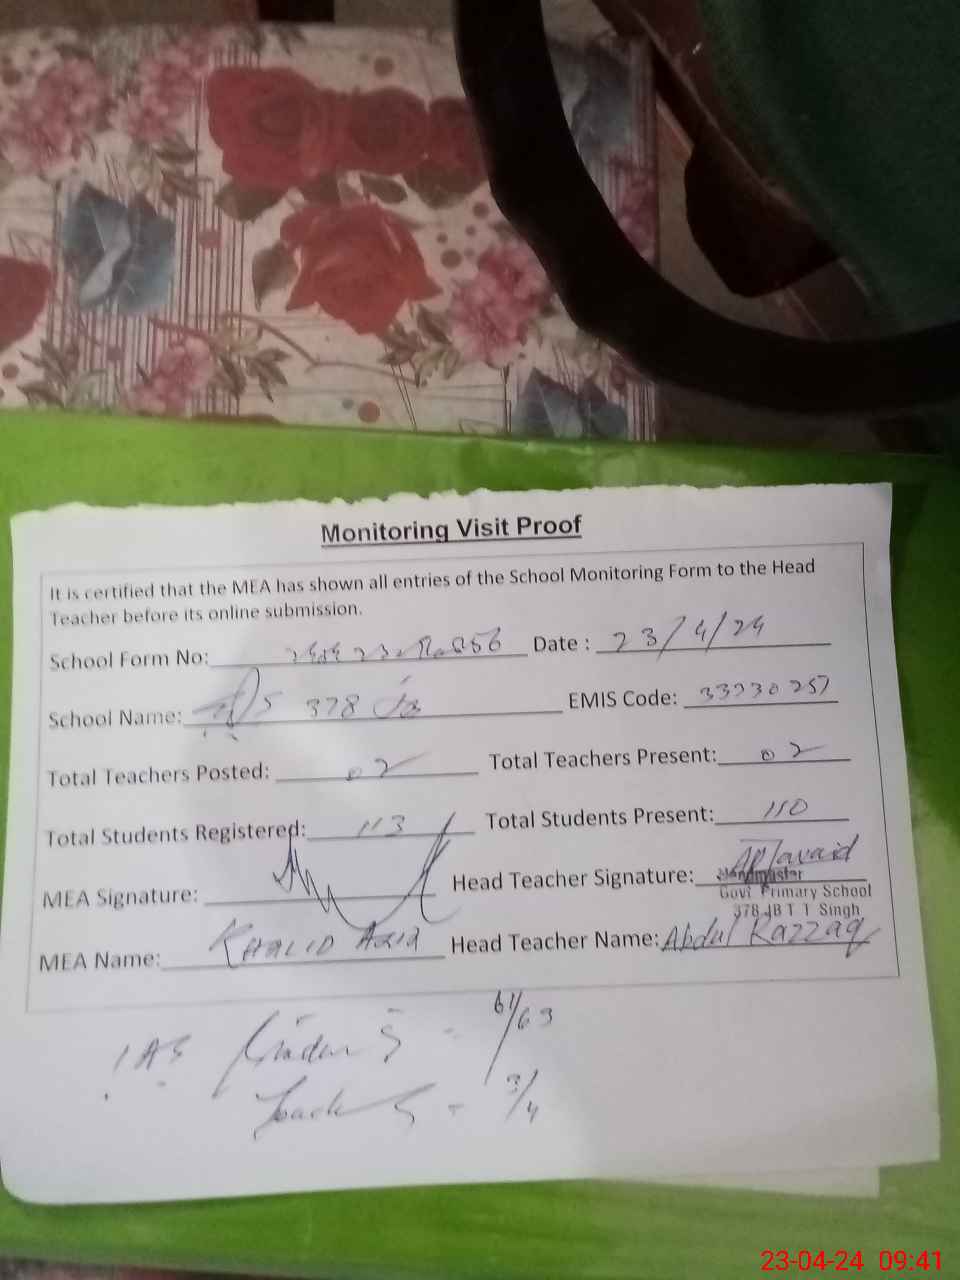 Monitoring Visit Proof
It is certified that the MEA has shown all entries of the School Monitoring Form to the Head
Teacher before its online submission.
School Form No: Date : 23/4/24
School Name: 378 EMIS Code: 33230257
Total Teachers Posted: 02 Total Teachers Present: 02
Total Students Registered: 113 Total Students Present: 110
MEA Signature: Head Teacher Signature:
Headmaster
Govt Primary School
378 JB T T Singh
MEA Name: KHALID AZIZ Head Teacher Name: Abdul Razzaq
61/63
3/4
23-04-24 09:41